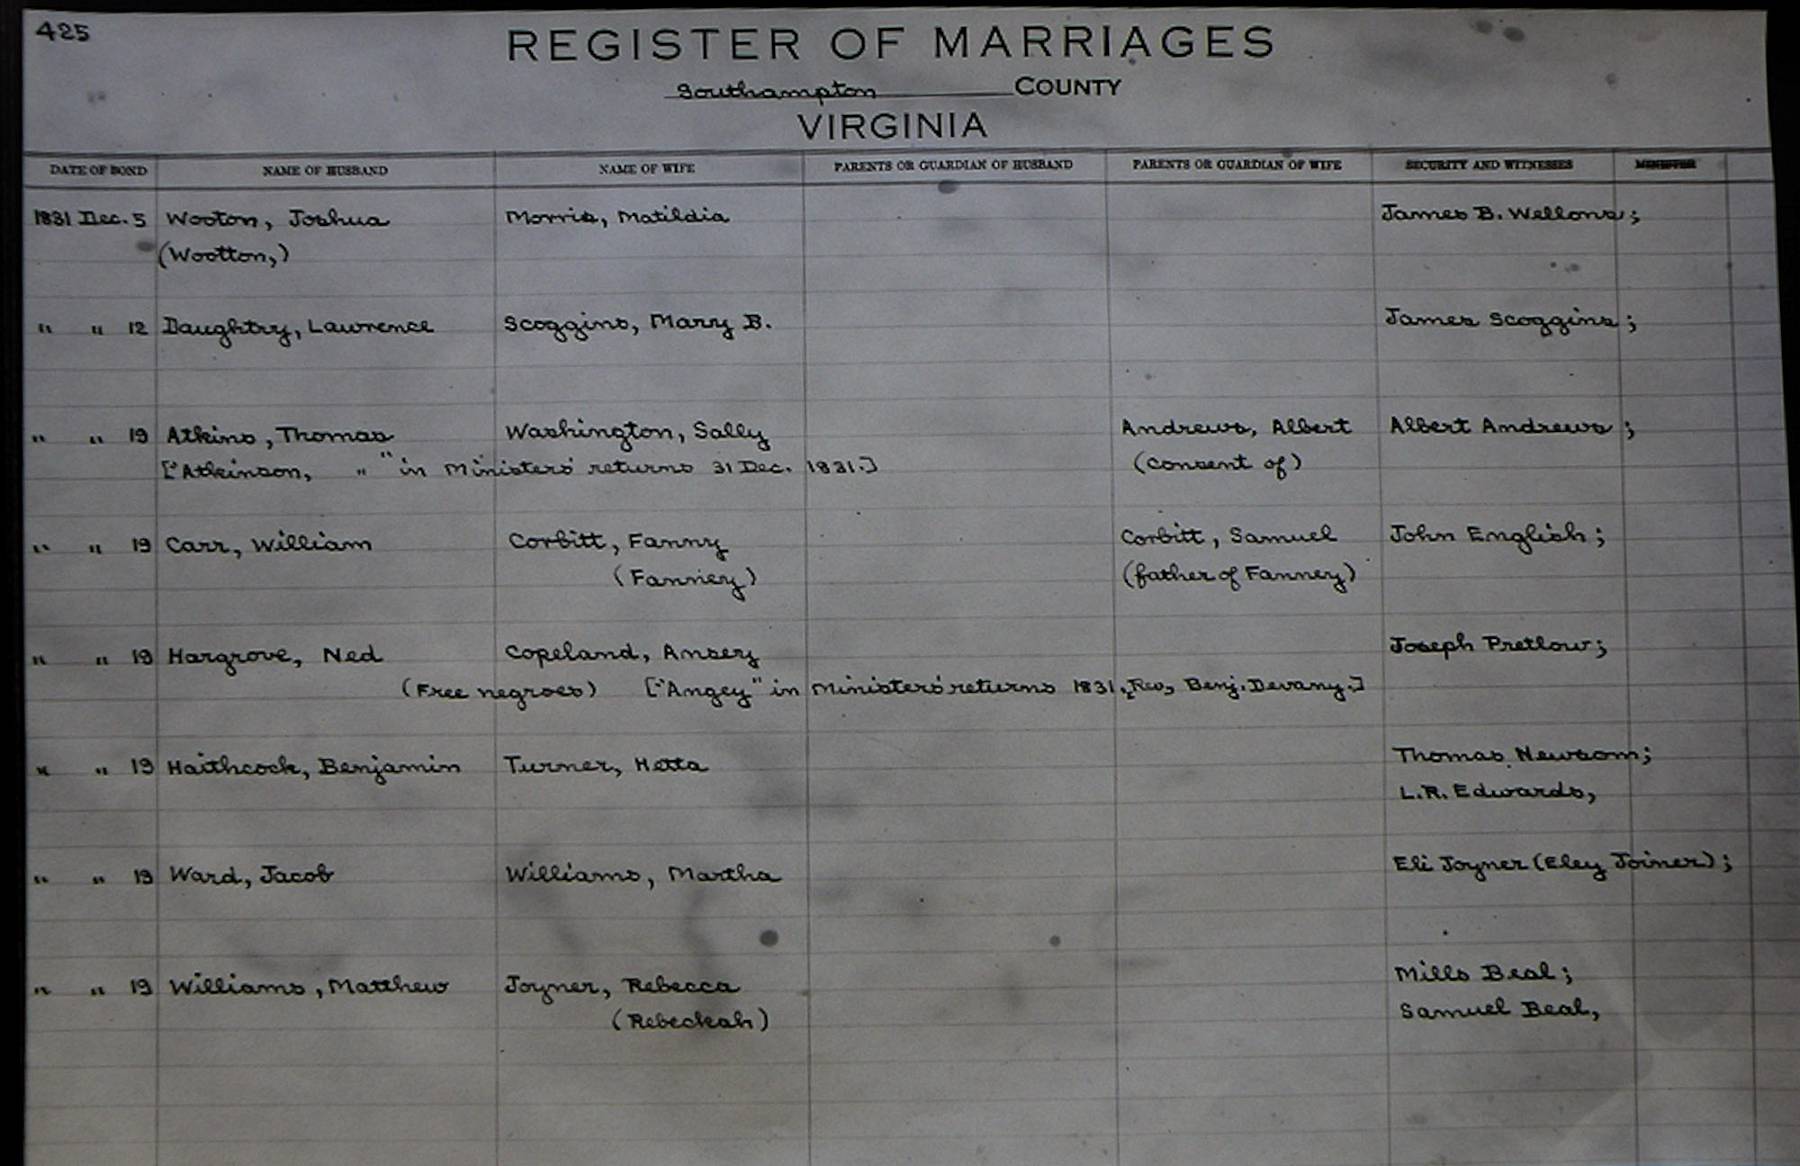 425
REGISTER OF MARRIAGES
Southampton COUNTY
VIRGINIA
DATE OF BOND NAME OF HUSBAND NAME OF WIFE PARENTS OR GUARDIAN OF HUSBAND PARENTS OR GUARDIAN OF WIFE SECURITY AND WITNESSES MINISTER
1831 Dec. 5 Wooton, Joshua Morris, Matildia James B. Wellons;
(Wootton,)
" " 12 Daughtry, Lawrence Scoggins, Mary B. James Scoggins;
" " 19 Atkins, Thomas Washington, Sally Andrews, Albert Albert Andrews;
["Atkinson, " " in Ministers' returns 31 Dec. 1831.] (consent of)
" " 19 Carr, William Corbitt, Fanny Corbitt, Samuel John English;
(Fanney) (father of Fanney)
" " 19 Hargrove, Ned Copeland, Ansey Joseph Pretlow;
(Free negroes) ["Angey" in Ministers' returns 1831, Rev, Benj. Devany.]
" " 19 Haithcock, Benjamin Turner, Hetta Thomas Newsom;
L.R. Edwards,
" " 19 Ward, Jacob Williams, Martha Eli Joyner (Eley Joiner);
" " 19 Williams, Matthew Joyner, Rebecca Mills Beal;
(Rebeckah) Samuel Beal,